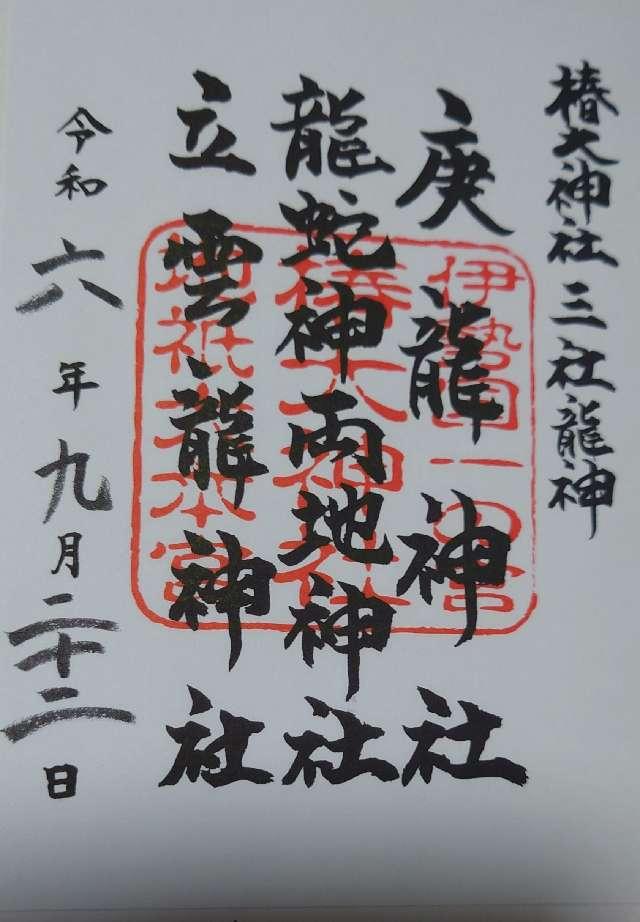 椿大神社 三社龍神
庚龍神社
龍蛇神両地神社
立雲龍神社
令和六年九月二十二日
伊勢国一の宮
椿大神社
地祇大本宮